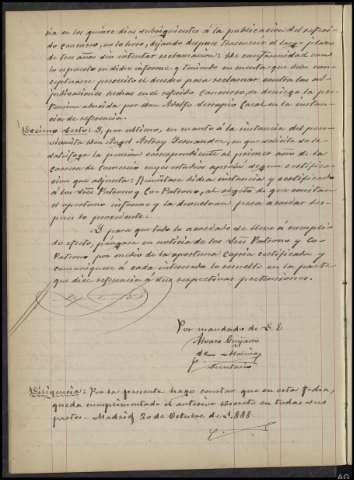 cia en los quince dias subsiguientes á la publicacion del referi-
do concurso, no lo hizo, dejando despues transcurrir el largo plazo
de tres años sin intentar reclamacion: De conformidad con
lo expuesto en dicho informe y teniendo en cuenta que debe con-
ceptuarse prescrito el derecho para reclamar contra las ad-
judicaciones hechas en el referido Concurso, se deniega la pe-
ticion aducida por don Adolfo Serapio Casal en la instan-
cia de referencia.
Décimo Sesto: Y, por último, en cuanto á la instancia del pen-
sionista don Angel Fernandez, en que solicita se le
satisfaga la pension correspondiente al primer año de la
carrera de Comercio cuyos estudios aprobó segun certifica-
cion que adjunta: Remítase dicha instancia y certificado
á los Sres. Patrono y Co-Patrono, al objeto de que emitan
el oportuno informe y la devuelvan para acordar des-
pues lo procedente.
Y para que todo lo acordado se lleve á cumplido
efecto, póngase en noticia de los Sres. Patrono y Co-
Patrono por medio de la oportuna copia certificada y
comuníquese á cada interesado lo resuelto en la parte
que dice referencia á sus respectivas pretensiones.
Por mandado de S. E.
Alvaro
de
Secretario
Diligencia: Por la presente hago constar que en esta fecha,
queda cumplimentado el anterior decreto en todas sus
partes. Madrid 20 de Octubre de 1.888.
AG